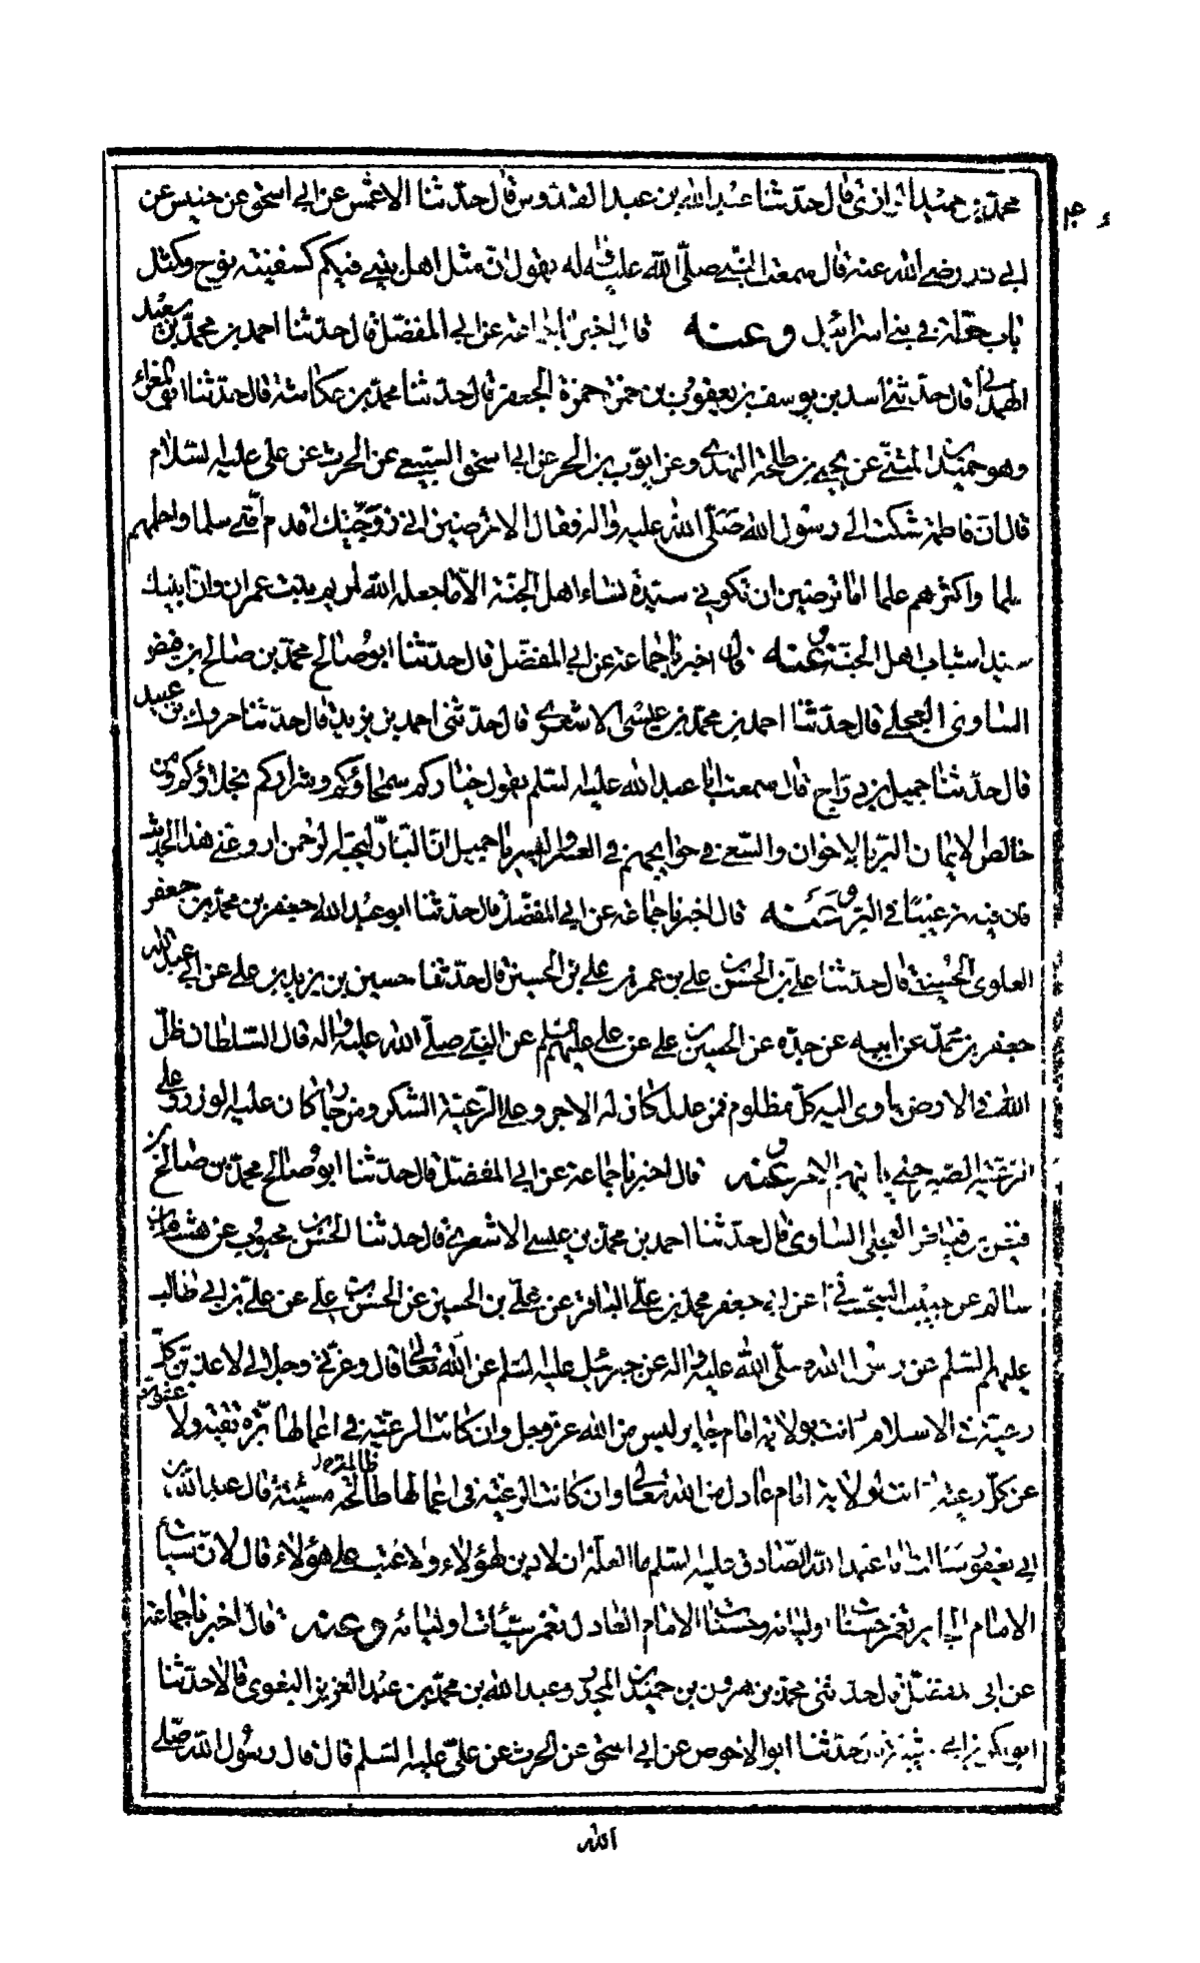 محمد بن حميد الرازي قال حدثنا عبد الله بن عبد القدوس قال حدثنا الاعمش عن ابي اسحق عن حنيس عن
ابي ذر رضي الله عنه قال سمعت النبي صلى الله عليه وآله يقول ان مثل اهل بيتي فيكم كسفينة نوح وكمثل
باب حطة في بني اسرائيل وعنه قال اخبرنا جماعة عن ابي المفضل قال حدثنا احمد بن محمد بن سعيد
الهمداني قال حدثني اسد بن يوسف بن يعقوب بن حمزة الجعفري قال حدثنا محمد بن عكاشة قال حدثنا ابو المغراء
وهو حميد بن المثنى عن يحيى بن طلحة النهدي وعن ايوب بن الحر عن ابي اسحق السبيعي عن الحرث عن علي عليه السلام
قال ان فاطمة شكت الى رسول الله صلى الله عليه واله فقال الا ترضين اني زوجتك اقدم امتي سلما واحلمهم
حلما واكثرهم علما اما ترضين ان تكوني سيدة نساء اهل الجنة الا ما جعله الله لمريم بنت عمران وان ابنيك
سيدا شباب اهل الجنة وعنه قال اخبرنا جماعة عن ابي المفضل قال حدثنا ابو صالح محمد بن صالح بن فيض
الساوي العجلي قال حدثنا احمد بن محمد بن عيسى الاشعري قال حدثني احمد بن يزيد قال حدثنا مروك بن عبيد
قال حدثنا جميل بن دراج قال سمعت ابا عبد الله عليه السلم يقول خياركم سمحاؤكم وشراركم بخلاؤكم ومن
خالص الايمان البر بالاخوان والسعي في حوايجهم في العسر واليسر يا جميل ان البار ليحبه الرحمن ارو عني هذا الحديث
فان فيه ترغيبا في البر وعنه قال اخبرنا جماعة عن ابي المفضل قال حدثنا ابو عبد الله جعفر بن محمد بن جعفر
العلوي الحسيني قال حدثنا علي بن الحسن بن علي بن عمر بن علي بن الحسين قال حدثنا حسين بن يزيد بن علي عن ابي عبد الله
جعفر بن محمد عن ابيه عن جده عن الحسين بن علي عن علي عليهم السلم عن النبي صلى الله عليه واله قال السلطان ظل
الله في الارض ياوي اليه كل مظلوم فمن عدل كان له الاجر وعلى الرعية الشكر ومن جار كان عليه الوزر وعلى
الرعية الصبر حتى ياتيهم الامر وعنه قال اخبرنا جماعة عن ابي المفضل قال حدثنا ابو صالح محمد بن صالح بن
فيض بن فياض العجلي الساوي قال حدثنا احمد بن محمد بن عيسى الاشعري قال حدثنا الحسن بن محبوب عن هشام بن
سالم عن حبيب السجستاني عن ابي جعفر محمد بن علي الباقر عن علي بن الحسين عن الحسن بن علي عن علي بن ابي طالب
عليهم السلم عن رسول الله صلى الله عليه واله عن جبرئيل عليه السلم عن الله تعالى قال وعزتي وجلالي لاعذبن كل
رعية في الاسلام دانت بولاية امام جاير ليس من الله عز وجل وان كانت الرعية في اعمالها برة تقية ولا عفون
عن كل رعية دانت لولاية امام عادل من الله تعالى وان كانت الرعية في اعمالها طالحة مسيئة قال عبد الله بن
ابي يعفور سالت ابا عبد الله الصادق عليه السلم ما العلة ان لا دين لهؤلاء ولا عتب على هؤلاء قال لان سيئات
الامام الجاير تغمر حسنات اوليائه وحسنات الامام العادل تغمر سيئات اوليائه وعنه قال اخبرنا جماعة
عن ابي المفضل قال حدثني محمد بن هرون بن حميد بن المجدر وعبد الله بن محمد بن عبد العزيز البغوي قالا حدثنا
ابو بكر بن ابي شيبة حدثنا ابو الاحوص عن ابي اسحق عن الحرث عن علي عليه السلم قال قال رسول الله صلى
الله